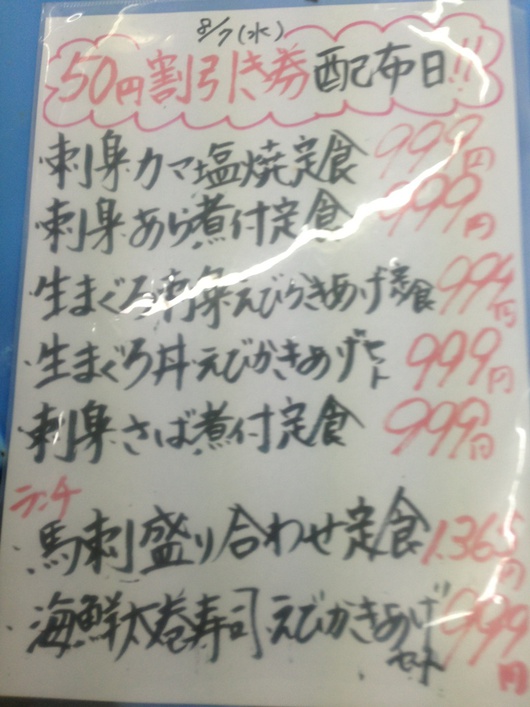 8/7(水)
50円割引き券配布日!!
刺身カマ塩焼定食 999円
刺身あら煮付定食 999円
生まぐろ刺身えびかきあげ定食 999円
生まぐろ丼えびかきあげセット 999円
刺身さば煮付定食 999円
ランチ
馬刺盛り合わせ定食 1,365円
海鮮太巻寿司えびかきあげセット 999円